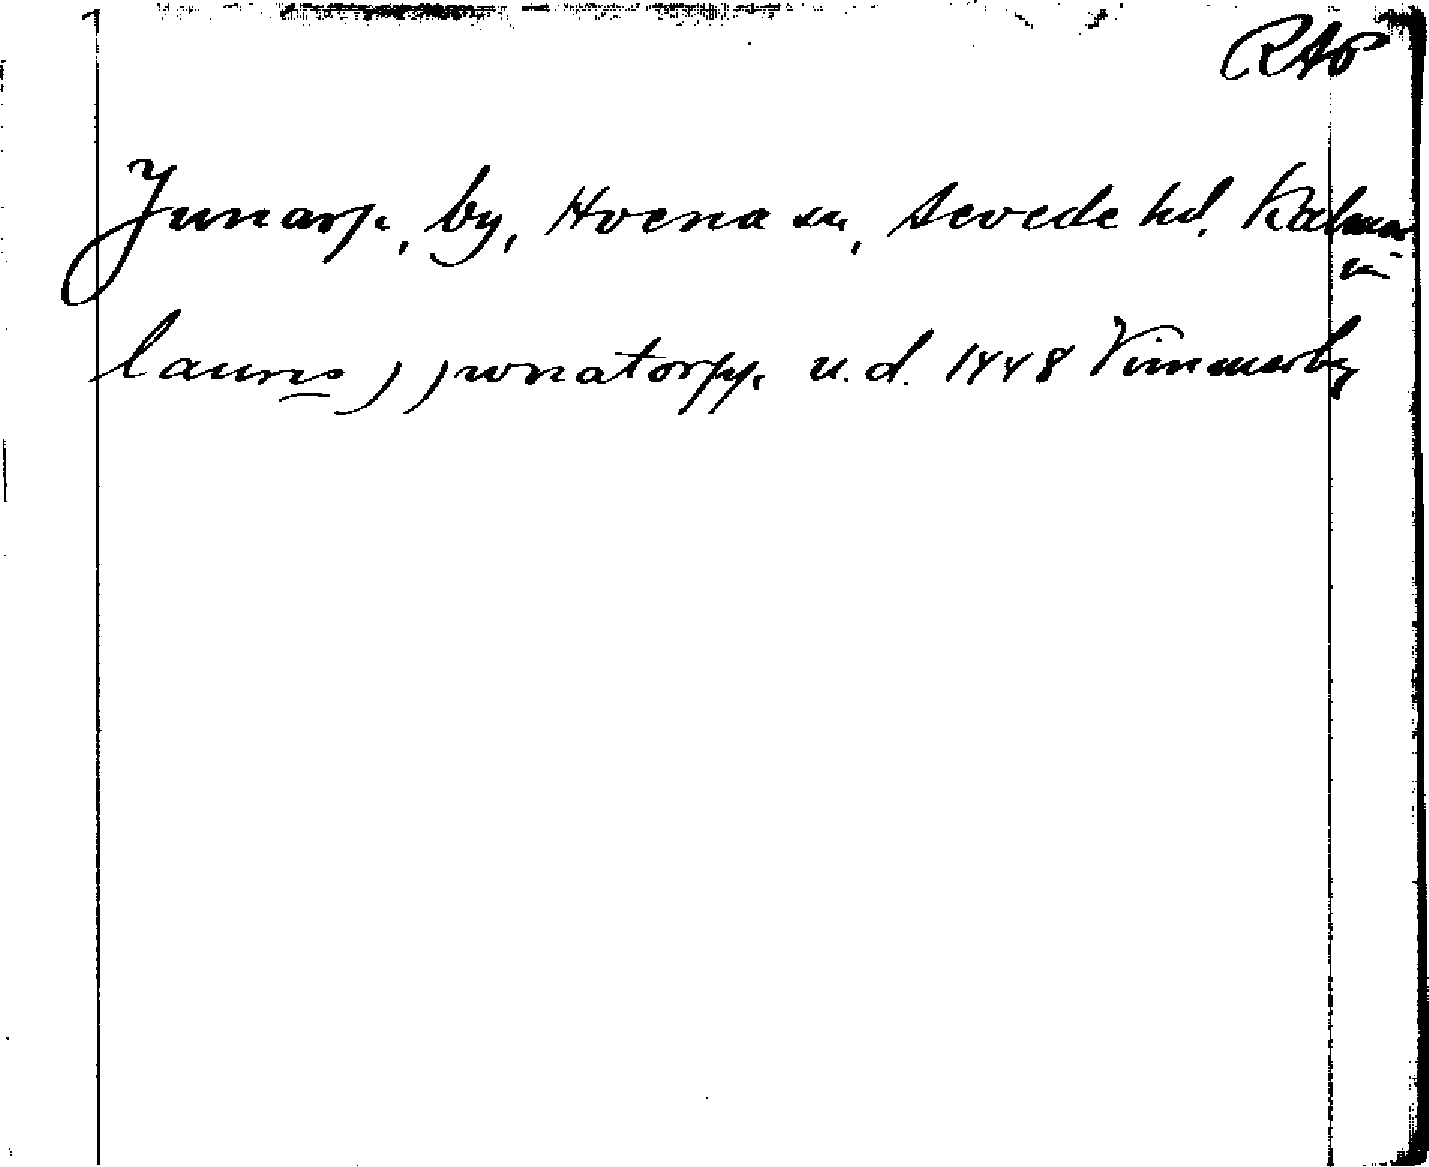 RAP
Junarp, by, Hvena sn, Sevede hd, Kalmar
län
lauris) junatorpp. u.d. 1448 Vimmerby